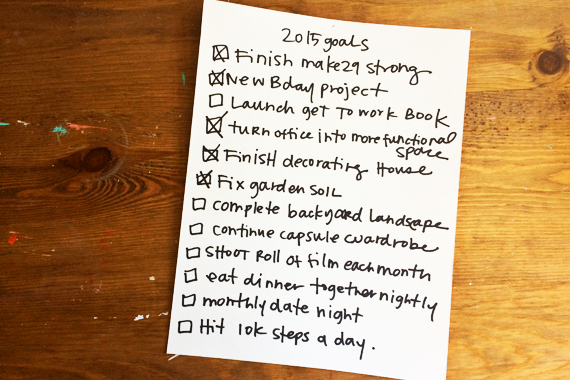 2015 goals
Finish make29 strong
New Bday project
Launch get to work Book
turn office into more functional
space
Finish decorating House
Fix garden soil
complete backyard landscape
continue capsule wardrobe
shoot roll of film each month
eat dinner together nightly
monthly date night
Hit 10k steps a day.